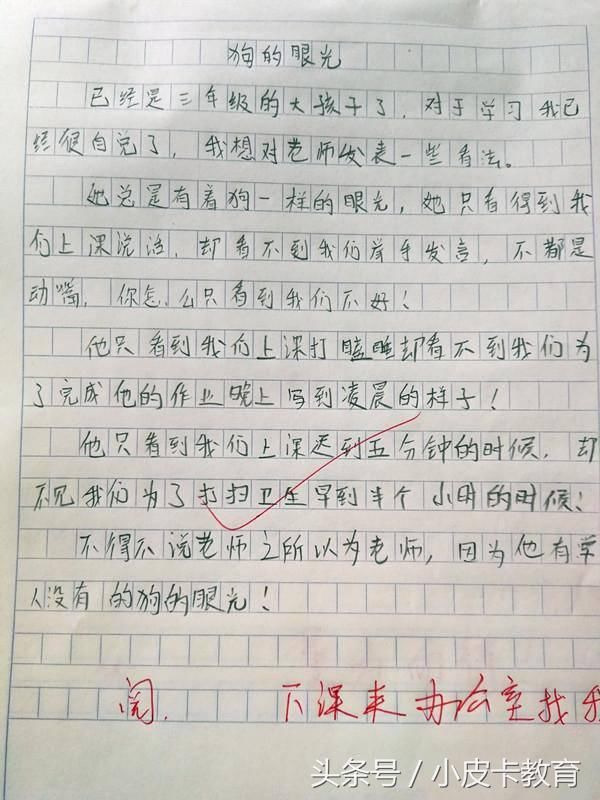 狗的眼光
已经是三年级的大孩子了，对于学习我已
经很自觉了，我想对老师发表一些看法。
她总是有着狗一样的眼光，她只看得到我
们上课说话，却看不到我们举手发言，不都是
动嘴，你怎么只看到我们不好！
他只看到我们上课打瞌睡却看不到我们为
了完成他的作业晚上写到凌晨的样子！
他只看到我们上课迟到五分钟的时候，却
不见我们为了打扫卫生早到半个小时的时候！
不得不说老师之所以为老师，因为他有常
人没有的狗的眼光！
阅. 下课来办公室找我
头条号 / 小皮卡教育